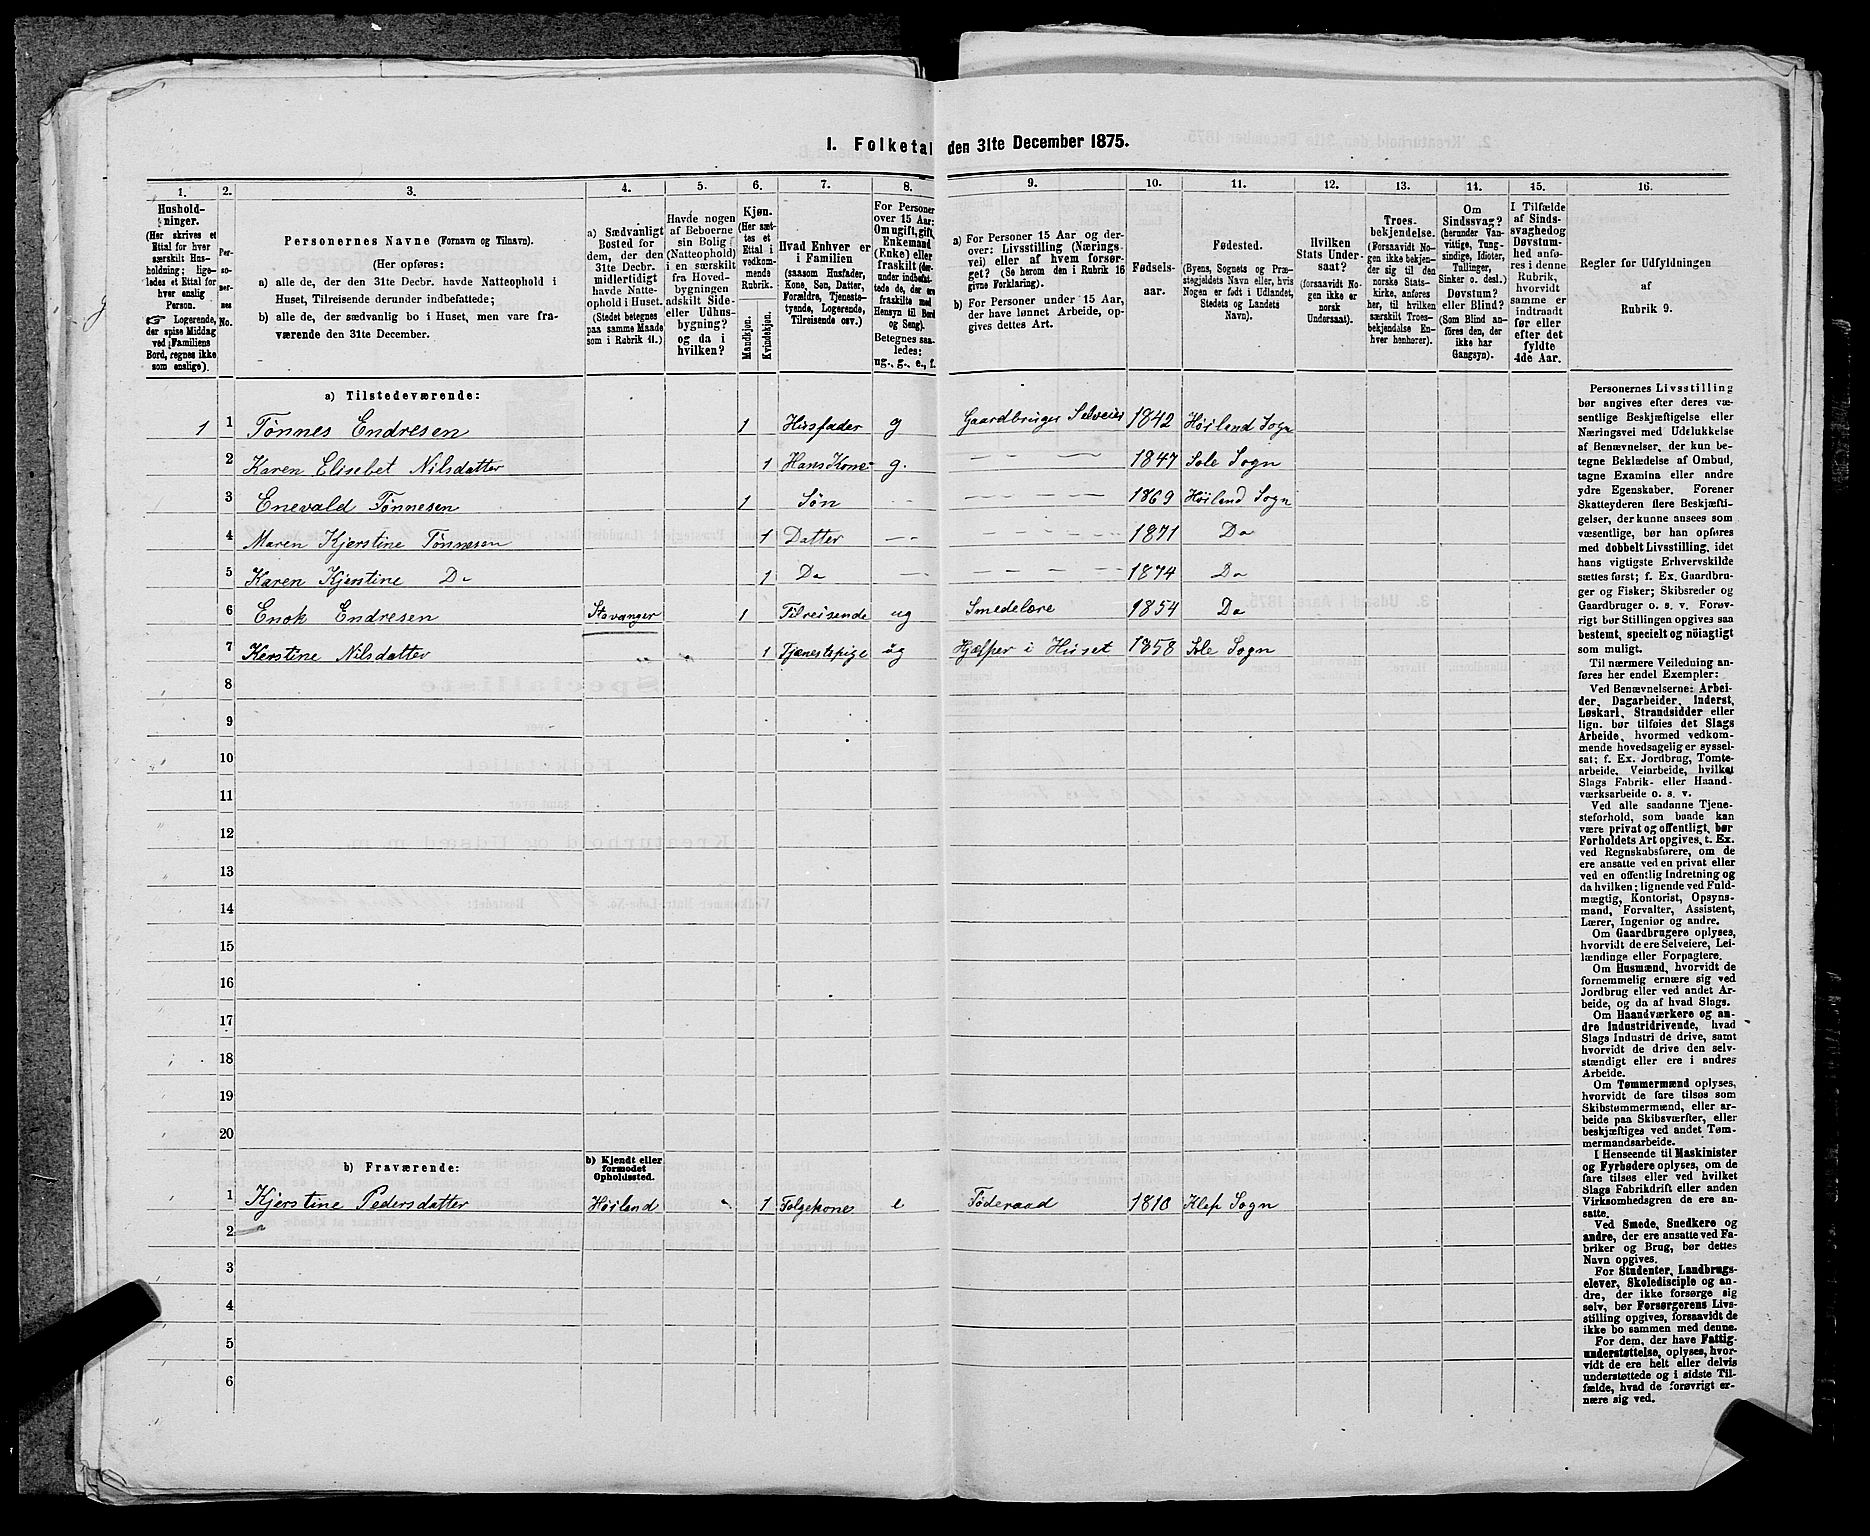 1. Folketal den 31te December 1875.
1. 2. 3. 4. 5. 6. 7. 8. 9. 10. 11. 12. 13. 14. 15. 16.
Hushold-
ninger.
(Her skrives et
Ettal for hver
særskilt Hus-
holdning; lige-
ledes et Ettal for
hver enslig
Person.
☞ Logerende,
der spise Middag
ved Familiens
Bord, regnes ikke
som enslige).
Per-
so-
ner-
nes
No.
Personernes Navne (Fornavn og Tilnavn).
(Her opføres:
a) alle de, der den 31te Decbr. havde Natteophold i
Huset, Tilreisende derunder indbefattede;
b) alle de, der sædvanlig bo i Huset, men vare fra-
værende den 31te December.
a) Sædvanligt
Bosted for
dem, der den
31te Decbr.
midlertidigt
havde Natte-
ophold i Huset.
(Stedet betegnes
paa samme Maade
som i Rubrik 11.)
Havde nogen
af Beboerne
sin Bolig
(Natteophold)
i en særskilt
fra Hoved-
bygningen
adskilt Side-
eller Udhus-
bygning?
og da i
hvilken?
Kjøn.
(Her sæt-
tes et
Ettal i
vedkom-
mende
Rubrik.
Mandkjøn.
Kvindekjøn.
Hvad Enhver er
i Familien
(saasom Husfader,
Kone, Søn, Datter,
Forældre, Tjeneste-
tyende, Logerende,
Tilreisende osv.)
For Personer
over 15 Aar:
Om ugift, gift,
Enkemand
(Enke) eller
fraskilt (der-
under indbefat-
tede de, der ere
fraskilte med
Hensyn til Bord
og Seng).
Betegnes saa-
ledes:
ug., g., e., f.
a) For Personer 15 Aar og der-
over: Livsstilling (Nærings-
vei) eller af hvem forsør-
get? (Se herom den i Rubrik 16
givne Forklaring).
b) For Personer under 15 Aar,
der have lønnet Arbeide, op-
gives dettes Art.
Fødsels-
aar.
Fødested.
(Byens, Sognets og Præ-
stegjeldets Navn, eller, hvis
Nogen er født i Udlandet,
Stedets og Landets
Navn).
Hvilken
Stats Under-
saat?
(forsaavidt No-
gen ikke er
norsk
Undersaat).
Troes-
bekjendelse.
(Forsaavidt No-
gen ikke bekjen-
der sig til den
norske Stats-
kirke, anføres
her, til hvilken
særskilt Troes-
bekjendelse En-
hver henhører).
Om
Sindssvag?
(herunder Van-
vittige, Tung-
sindige, Idioter,
Tullinger,
Sinker o. desl.)
Døvstum?
eller Blind?
(Som Blind an-
føres den, der
ikke har
Gangsyn).
I Tilfælde
af Sinds-
svaghed og
Døvstum-
hed anfø-
res i denne
Rubrik,
hvorvidt
samme er
indtraadt
før eller
efter det
fyldte
4de Aar.
Regler for Udfyldningen
af
Rubrik 9.
a) Tilstedeværende:
1 1 Tønnes Endresen 1 Husfader g Gaardbruger Selveier 1842 Höiland Sogn
2 Karen Elisebet Nilsdatter 1 Hans Kone g. 1847 Sole Sogn
3 Enevald Tønnesen 1 Søn 1869 Höiland Sogn
4 Maren Kjerstine Tønnesen 1 Datter 1871 Do
5 Karen Kjerstine Do 1 Do 1874 Do
6 Enok Endresen Stavanger 1 Tilreisende ug Smedelære 1854 Do
7 Kerstine Nilsdatter 1 Tjenestepige ug Hjælper i Huset 1858 Sole Sogn
8
9
10
11
12
13
14
15
16
17
18
19
20
b) Fraværende:
b) Kjendt eller
formodet
Opholdssted.
1 Kjerstine Pedersdatter Höiland 1 Folgekone e Föderaad 1810 Klep Sogn
2
3
4
5
6
Personernes Livsstilling
bør angives efter deres væ-
sentlige Beskjæftigelse eller
Næringsvei med Udelukkelse
af Benævnelser, der kun be-
tegne Beklædelse af Ombud,
tagne Examina eller andre
ydre Egenskaber. Forener
Skatteyderen flere Beskjæfti-
gelser, der kunne ansees som
væsentlige, bør han opføres
med dobbelt Livsstilling, idet
hans vigtigste Erhvervskilde
sættes først; f. Ex. Gaardbru-
ger og Fisker; Skibsreder og
Gaardbruger o. s. v. Forøv-
rigt bør Stillingen opgives saa
bestemt, specielt og nöiagtigt
som muligt.
Til nærmere Veiledning an-
føres her endel Exempler:
Ved Benævnelserne: Arbei-
der, Dagarbeider, Inderst,
Løskarl, Strandsidder eller
lign. bør tilføies det Slags
Arbeide, hvormed vedkom-
mende hovedsagelig er syssel-
sat; f. Ex. Jordbrug, Tomte-
arbeide, Veiarbeide, hvilket
Slags Fabrik- eller Haand-
værksarbeide o. s. v.
Ved alle saadanne Tjene-
steforhold, som baade kan
være privat og offentligt, bør
Forholdets Art opgives, t. Ex.
ved Regnskabsførere, om de
ere ansatte ved en privat eller
ved en offentlig Indretning og
da hvilken; lignende ved Fuld-
mægtig, Kontorist, Opsyns-
mand, Forvalter, Assistent,
Lærer, Ingeniør og andre.
Om Gaardbrugere oplyses,
hvorvidt de ere Selveiere, Lei-
lændinge eller Forpagtere.
Om Husmænd, hvorvidt de
fornemmelig ernære sig ved
Jordbrug eller ved andet Ar-
beide, og da af hvad Slags.
Om Haandværkere og an-
dre Industridrivende, hvad
Slags Industri de drive, samt
hvorvidt de drive den selv-
stændigt eller ere i andres
Arbeide.
Om Tømmermænd oplyses,
hvorvidt de fare tilsøs som
Skibstømmermænd, eller ar-
beide paa Skibsværfter, eller
beskjæftiges ved andet Tøm-
mermandsarbeide.
I Henseende til Maskinister
og Fyrbødere oplyses, om de
fare tilsøs eller ved hvilket
Slags Fabrikdrift eller anden
Virksomhedsgren de ere an-
satte.
Ved Smede, Snedkere og
andre, der ere ansatte ved Fa-
briker og Brug, bør dettes
Navn opgives.
For Studenter, Landbrugs-
elever, Skoledisciple og an-
dre, der ikke forsørge sig
selv, bør Forsørgerens Livs-
stilling opgives, forsaavidt de
ikke bo sammen med denne.
For dem, der have Fattig-
understøttelse, oplyses, hvor-
vidt de ere helt eller delvis
understøttede og i sidste Til-
fælde, hvad de forøvrigt er-
nære sig ved.